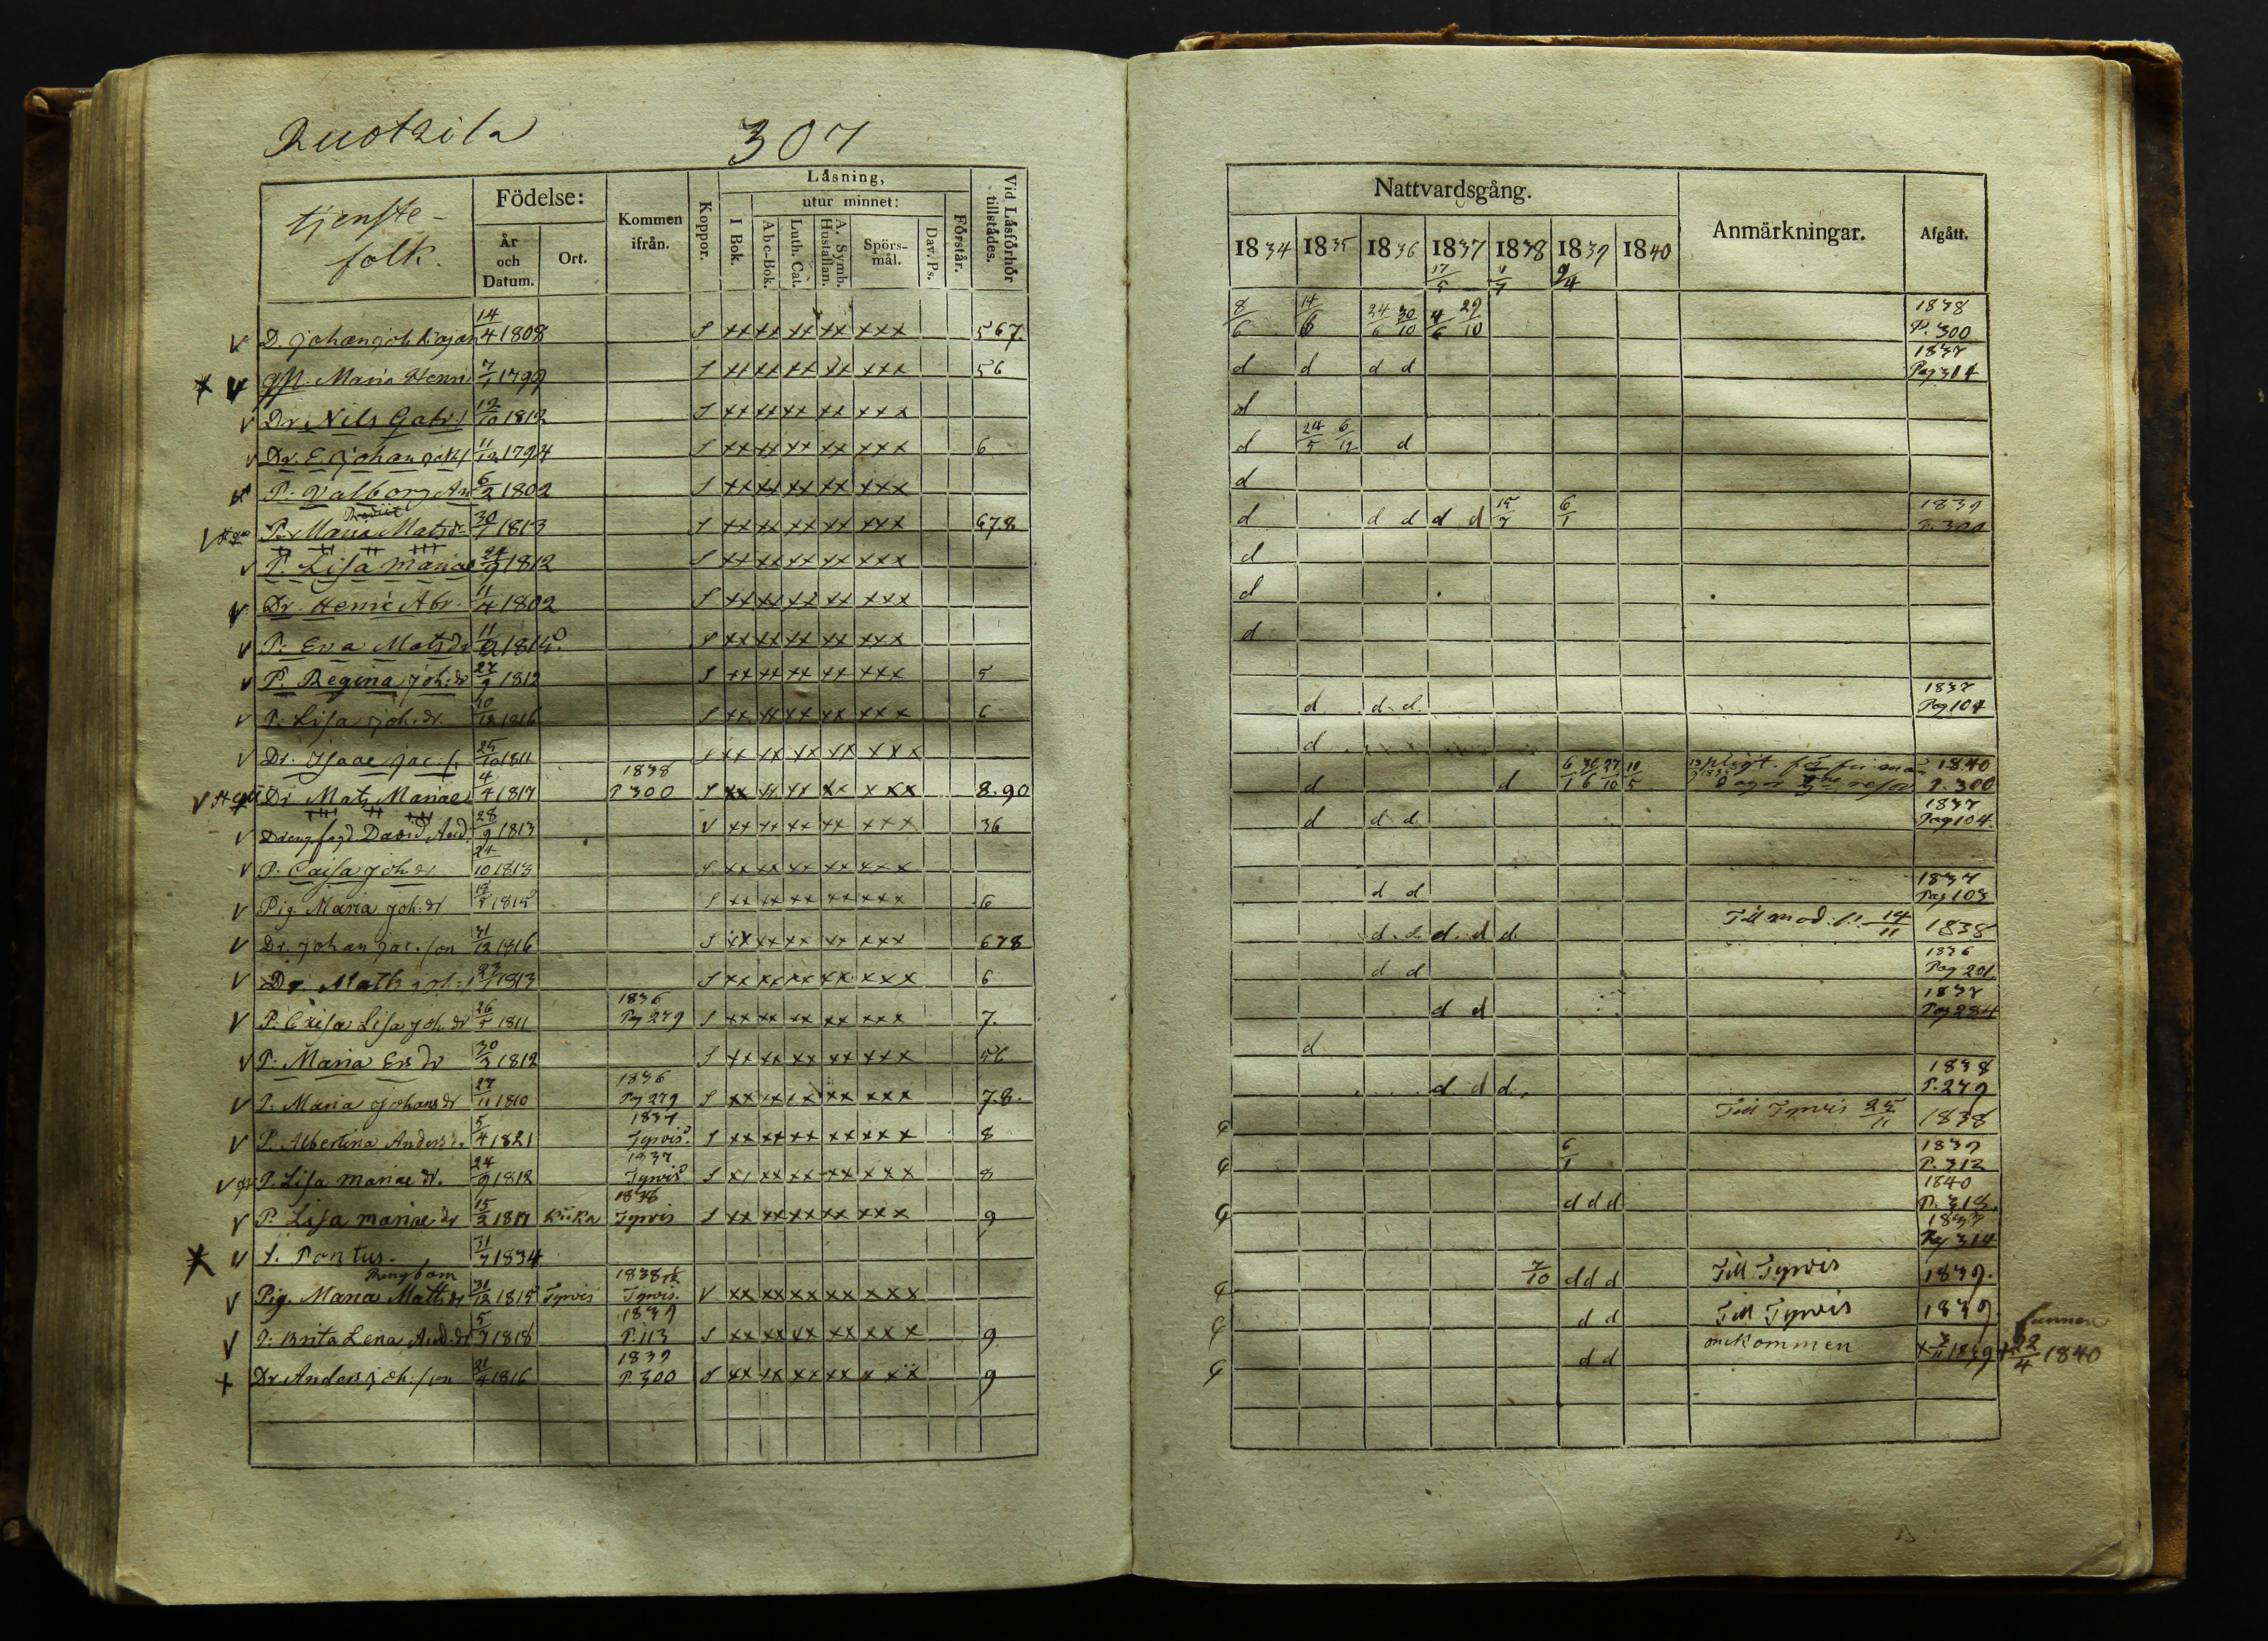 Ruotzila 307
tjenste-
folk.
Födelse:
År
och
Datum.
Ort.
Kommen
ifrån.
Koppor.
Läsning,
I Bok.
utur minnet:
Abc-Bok.
Luth. Cat.
A. Symb.
Hustaflan.
Spörs-
mål.
Dav. Ps.
Förstår.
Vid Läsförhör
tillstädes.
14/4 1808 S xx xx xx xx xxx 567.
Maria Henri 7/1 1799 S xx xx xx xx xxx 56
Dr Nils Gabr 12/10 1812 S xx xx xx xx xxx
Dr. E. Johan 11/12 1794 S xx xx xx xx xxx 6
P. Valborg An 6/2 1802 S xx xx xx xx xxx
Rediit
P. Maria Matsdr 30/1 1813 S xx xx xx xx xxx 678
P. Lisa Mariae 24/9 1812 S xx xx xx xx xxx
Dr. Henric Abr. 11/4 1802 S xx xx xx xx xxx
P. Eva Matsdr S xx xx xx xx xxx
P. Regina Joh:dr 27/9 1812 S xx xx xx xx xxx 5
P. Lisa Joh:dr. 10/12 1816 S xx xx xx xx xxx 6
Dr. Isaac Jac. s. 25/10 1811 S xx xx xx xx xxx
Dr Mats Mariae 4/4 1817 1838 P 300 S xx xx xx xx xxx 8.90
David And. 28/9 1813 V xx xx xx xx xxx 36
P. Caisa Joh dr 24/10 1813 S xx xx xx xx xxx
Pig. Maria Joh:dr S xx xx xx xx xxx 6
Dr. Johan Jac. son 31/12 1816 S xx xx xx xx xxx 678
Dr. Matts S xx xx xx xx xxx 6
P. Lisa Joh. dr 1811 1836 Pag 279 S xx xx xx xx xxx 7.
P: Maria Ers dr 30/3 1812 S xx xx xx xx xxx 56
P. Maria Johans dr 27/11 1810 1836 Pag 279 S xx xx xx xx xxx 78.
P. Albertina Anders dr 5/4 1821 1837 Tyrvis. S xx xx xx xx xxx 8
P. Lisa Mariae dr. 24/9 1812 1837 Tyrvis S xx xx xx xx xxx 8
P. Lisa mariae dr 15/3 Kiika Tyrvis S xx xx xx xx xxx 9
Pontus. 1834
Ringbom
Pig. Maria Matts dr 31/12 1815 Tyrvis 1838 Tyrvis. V xx xx xx xx xxx
P: Brita Lena And.dr 5/7 1818 1839 P. 113 S xx xx xx xx xxx 9
Dr. Anders Joh. son 21/4 1816 1839 P. 300 S xx xx xx xx xxx 9
Nattvardsgång.
1834 1835 1836 1837 1838 1839 1840
Anmärkningar.
Afgått.
8/6 14/6 24/6 30/10 4/6 29/10 1838 P. 300
d d d d 1837 Pag 314
d
d 24/5 6/12 d
d
d d d d d 15/7 6/1 1839 P. 300
d
d
d
d d d 1837 Pag 104
d
d d 6/1 30/6 27/10 10/5 1840 P. 300
d d d 1837 Pag 104
d d 1837 Pag 103
d d d d d Till mod. 14/11 1838
d d 1836 Pag 201
d d 1837 Pag 284
d
d d d 1838 P. 279
Till Tyrvis 25/11 1838
6/1 1839 P. 312
d d d 1840 P. 318
Pag 314
7/10 d d d Till Tyrvis 1839.
d d Till Tyrvis 1839.
d d omkommen funnen 22/4 1840